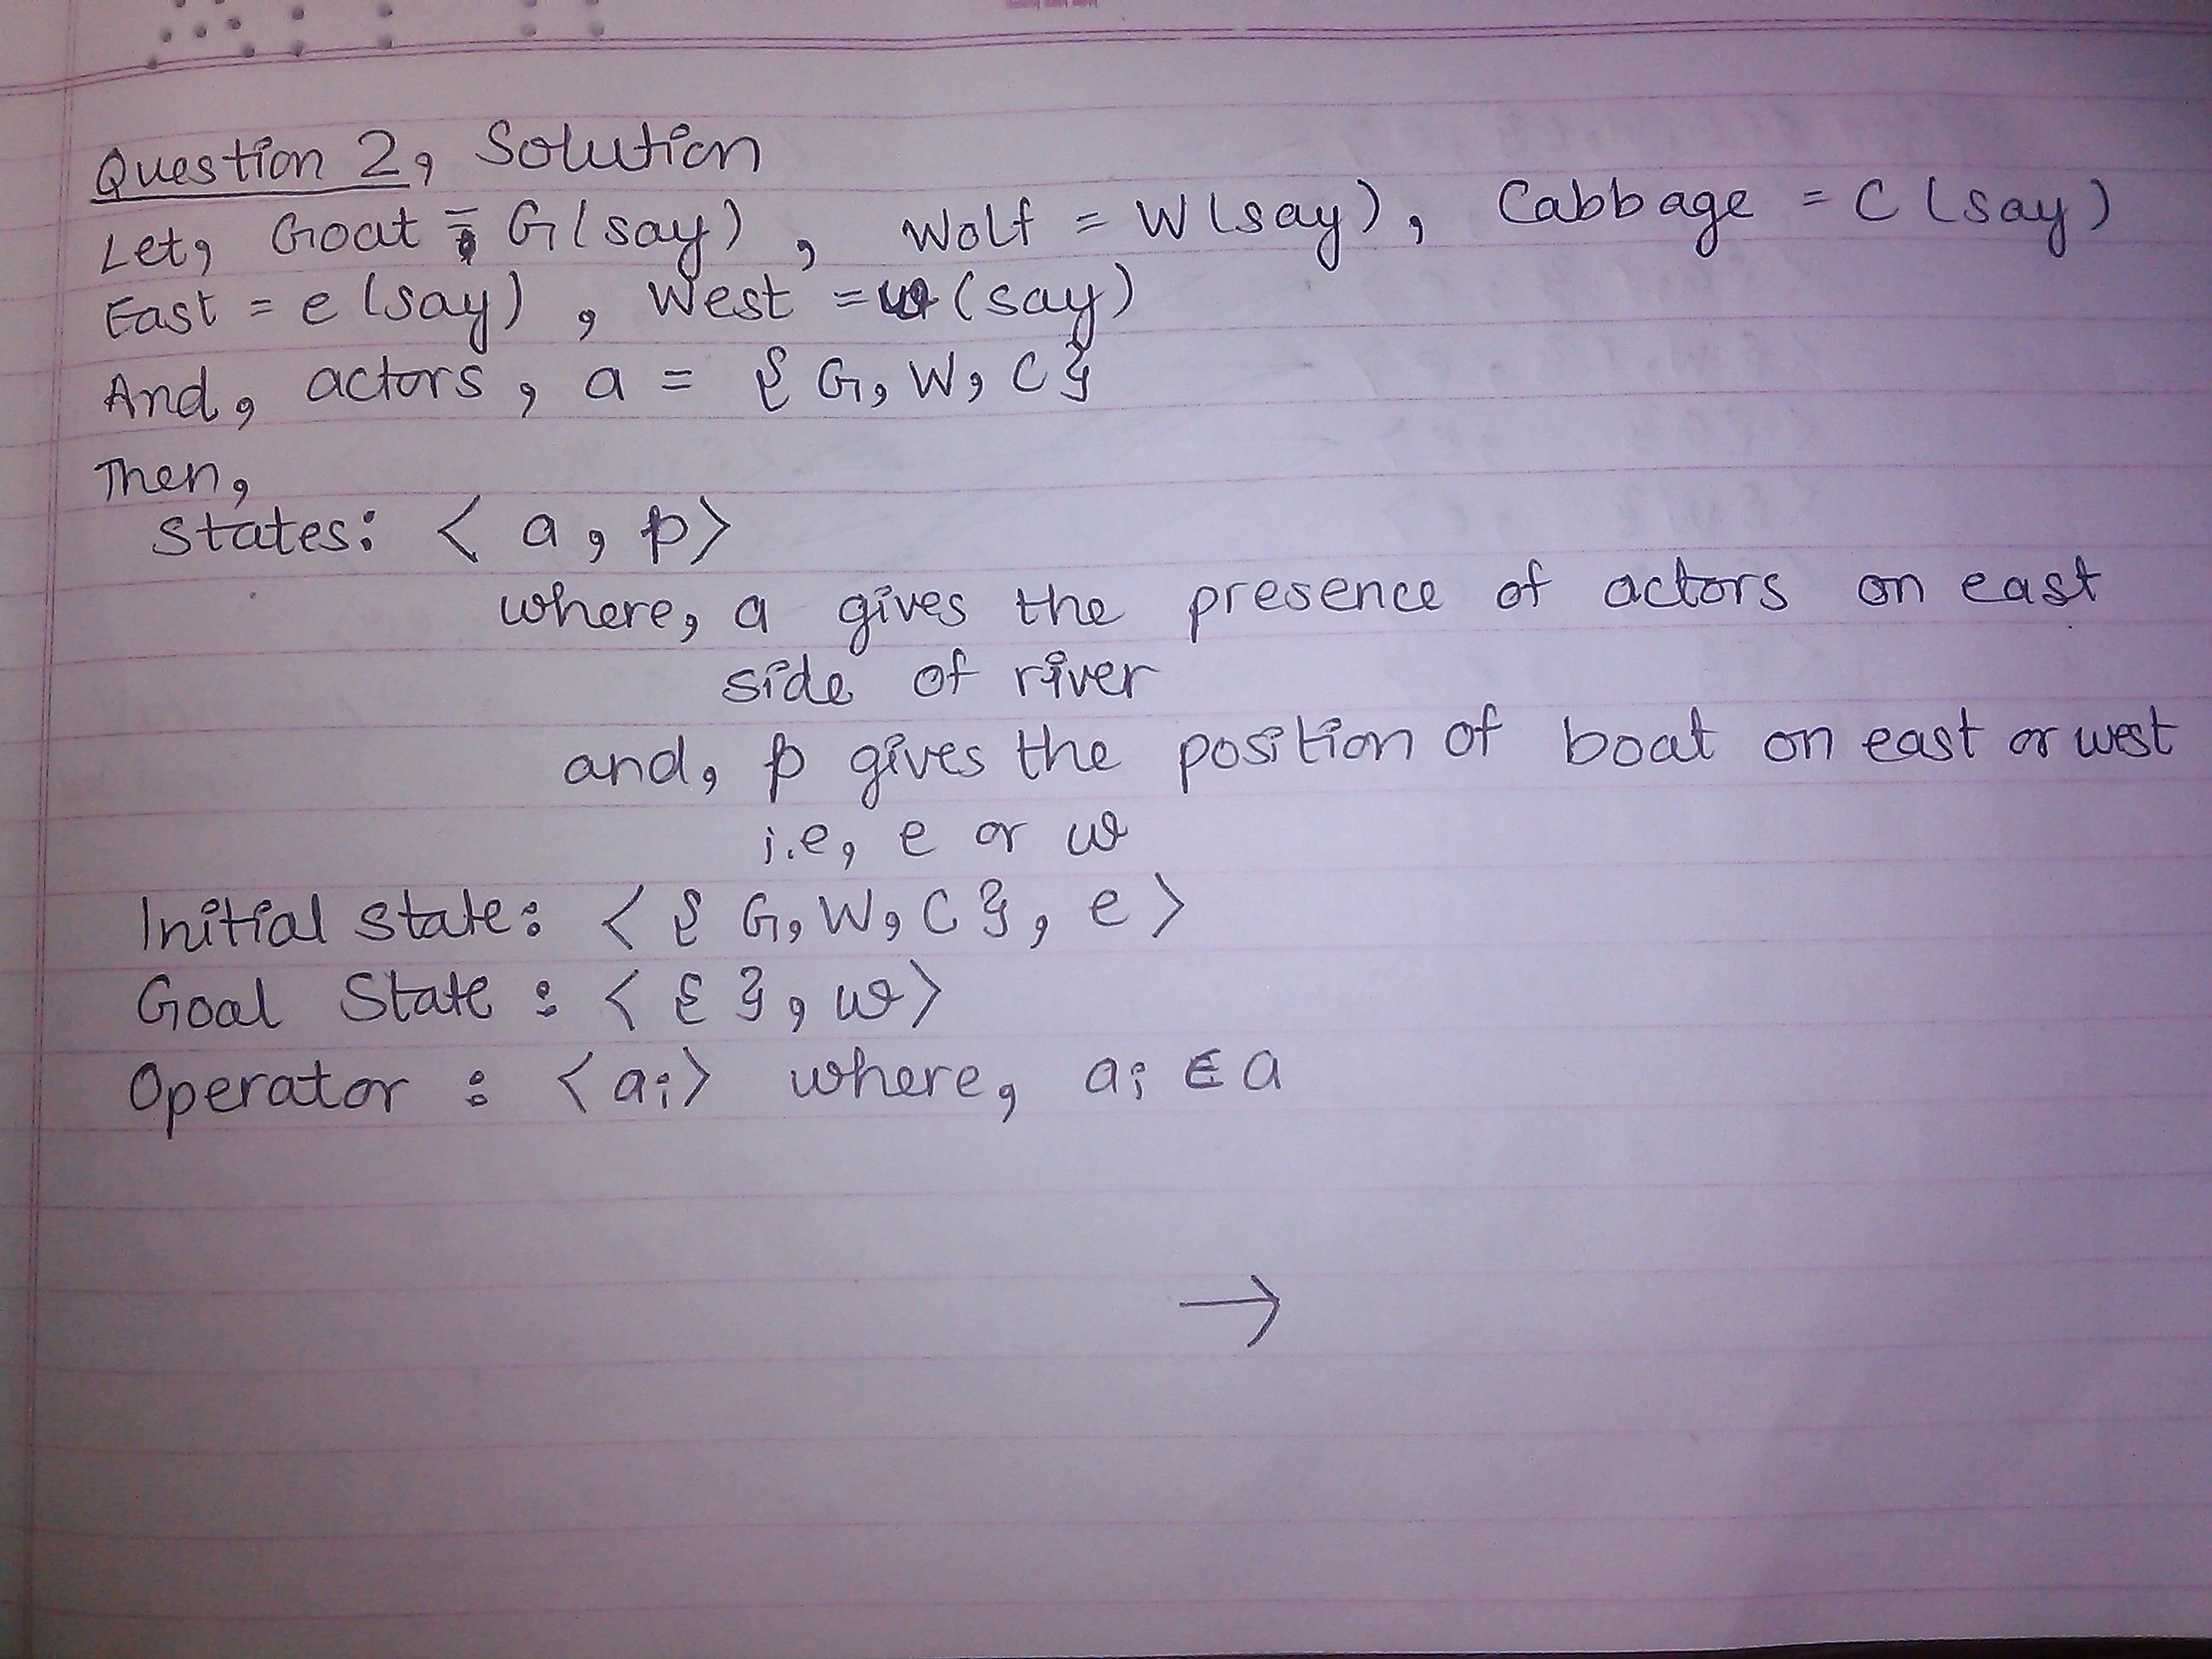 Question 2, Solution
Let, Goat = G (say), Wolf = W (say), Cabbage = C (say)
East = e (say), West = w (say)
And, actors, a = { G, W, C }
Then,
States: < a, p >
where, a gives the presence of actors on east
side of river
and, p gives the position of boat on east or west
i.e, e or w
Initial state: < { G, W, C }, e >
Goal State : < { }, w >
Operator : < ai > where, ai ∈ a
→